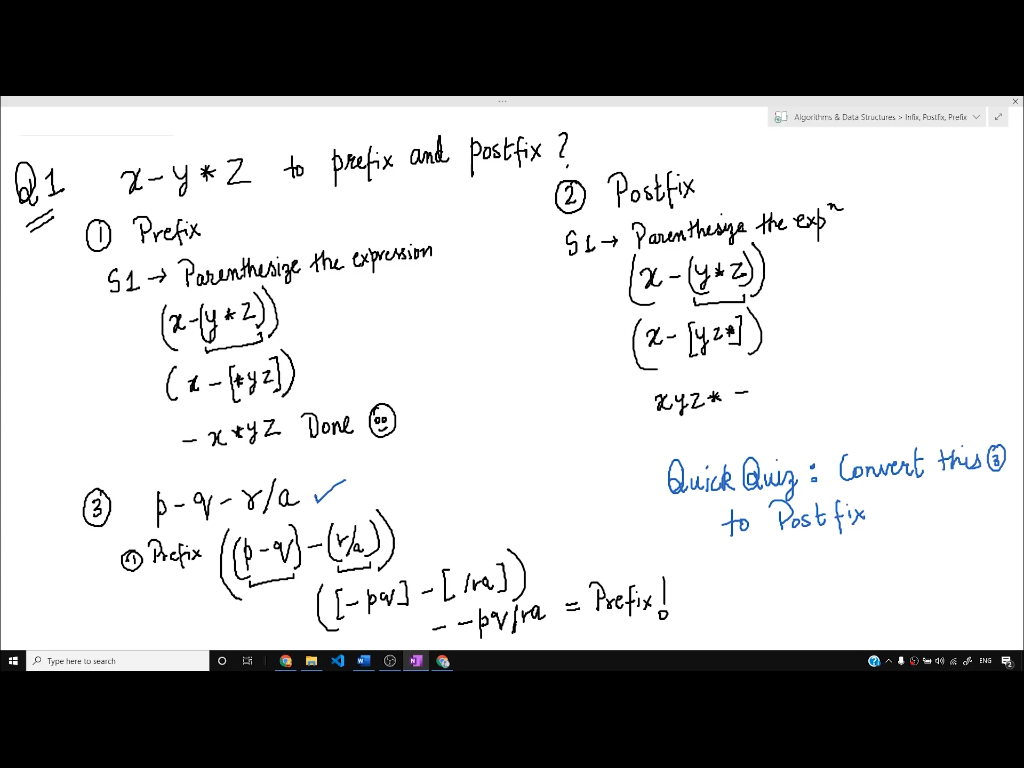 Algorithms & Data Structures > Infix, Postfix, Prefix
Q1 x - y * z to prefix and postfix ?
① Prefix
S1 → Parenthesize the expression
(x-(y*z))
(x-[*yz])
- x *yz Done
② Postfix
S1 → Parenthesize the expⁿ
(x-(y*z))
(x-[yz*])
xyz* -
③ p-q-r/a ✓
① Prefix ((p-q)-(r/a))
([-pq]-[/ra])
- -pq/ra = Prefix!
Quick Quiz : Convert this ③
to Postfix
Type here to search
ENG